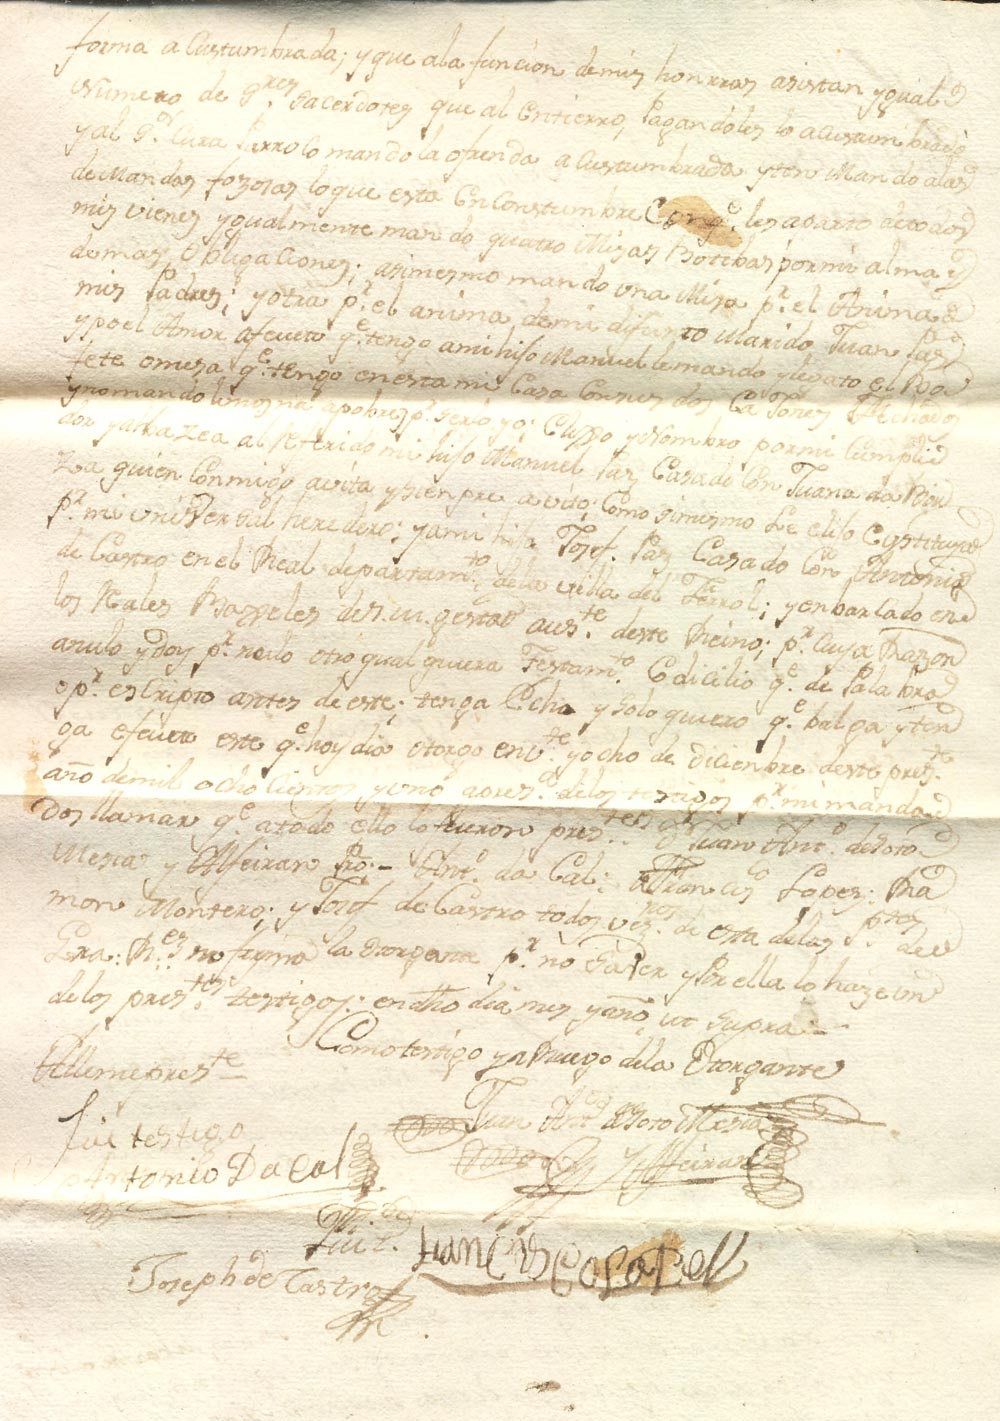 forma a Custumbrada; y que ala funcion demis honrras asistan ygual
Numero de Sres Sacerdotes que al Entierro, Pagandoles lo acustumbrado
y al Sr Cura Parroco mando la ofrenda a Custumbrada yten Mando alas
de Mandas fozosas lo que esta En Constumbre Con qe. les aparto de todos
mis vienes ygualmente mando quatro Misas Botibas por mi alma y
demas Obligaciones; asimesmo mando una Misa pr. el Anima de
mis Padres; y otra pr. el anima de mi difunto Marido Juan Paz
y po el Amor afeuto qe. tengo ami hijo Manuel le mando y legato el
fete omesa qe. tengo en esta mi Casa Con sus dos Caxones
y no mando limosna apobres pr. serlo yo; Elixo y Nombro por mi Cumpli
dor y albazea al Referido mi hijo Manuel Paz Casado Con Juana da
a quien Conmigo avita y sienpre avito; Como simismo Le elijo Cystituyo
pr. mi universal heredero; y ami hijo Josef. Paz Casado Con Antonia
de Castro en el Real departamto. dela villa del Ferrol; y enbarcado en
los Rales Baxeles de S. M. deste Reino; pr. Cuya Razon
anulo y doy pr. nulo otro qual quiera Testamto. Codicilio qe. de Palabra
o pr. escripto antes de este; tenga Echo y solo quiero qe. balga y ten
ga efeuto este qe. hoy dia otorgo en vte. y ocho de diciembre deste preste.
año de mil ocho Cientos y uno de los testigos pr. mi manda
Dos llamar qe. atodo ello lo fueron prestes. Dn Juan Anto. de Soto
Mesia y Alfeiran Pro.- Anto. da Cal: Francisco Lopes: Ra
mon Montero; y Josef de Castro todos vezos. de esta de las ptes de
no firma la otorgante pr. no saver y Por ella lo haze un
de los prestes. testigos: en dho dia mes y año, ut supra
Como testigo y a Ruego dela Otorgante
Allemepreste
Juan Anto de Soto Mesia
y Alfeiran
fui testigo
Antonio Da Cal
Joseph de Castro